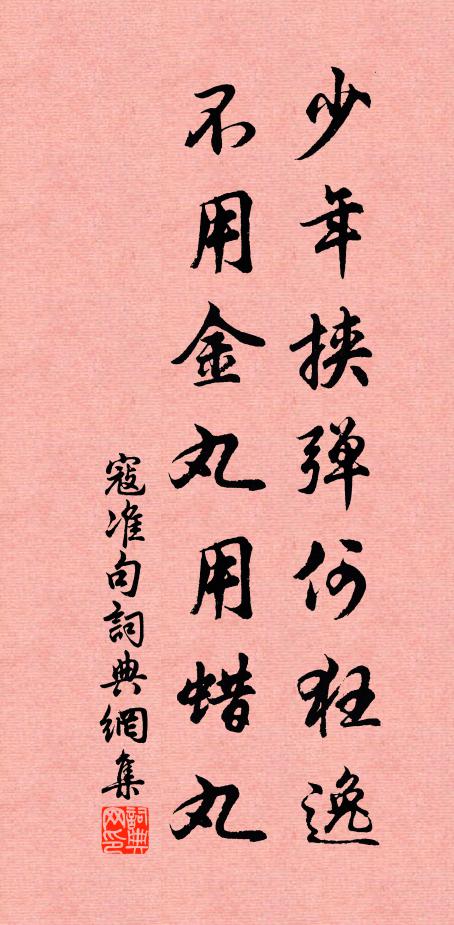 少年挟弹何狂逸
不用金丸用蜡丸
寇准句詞典網集
詞典
网印